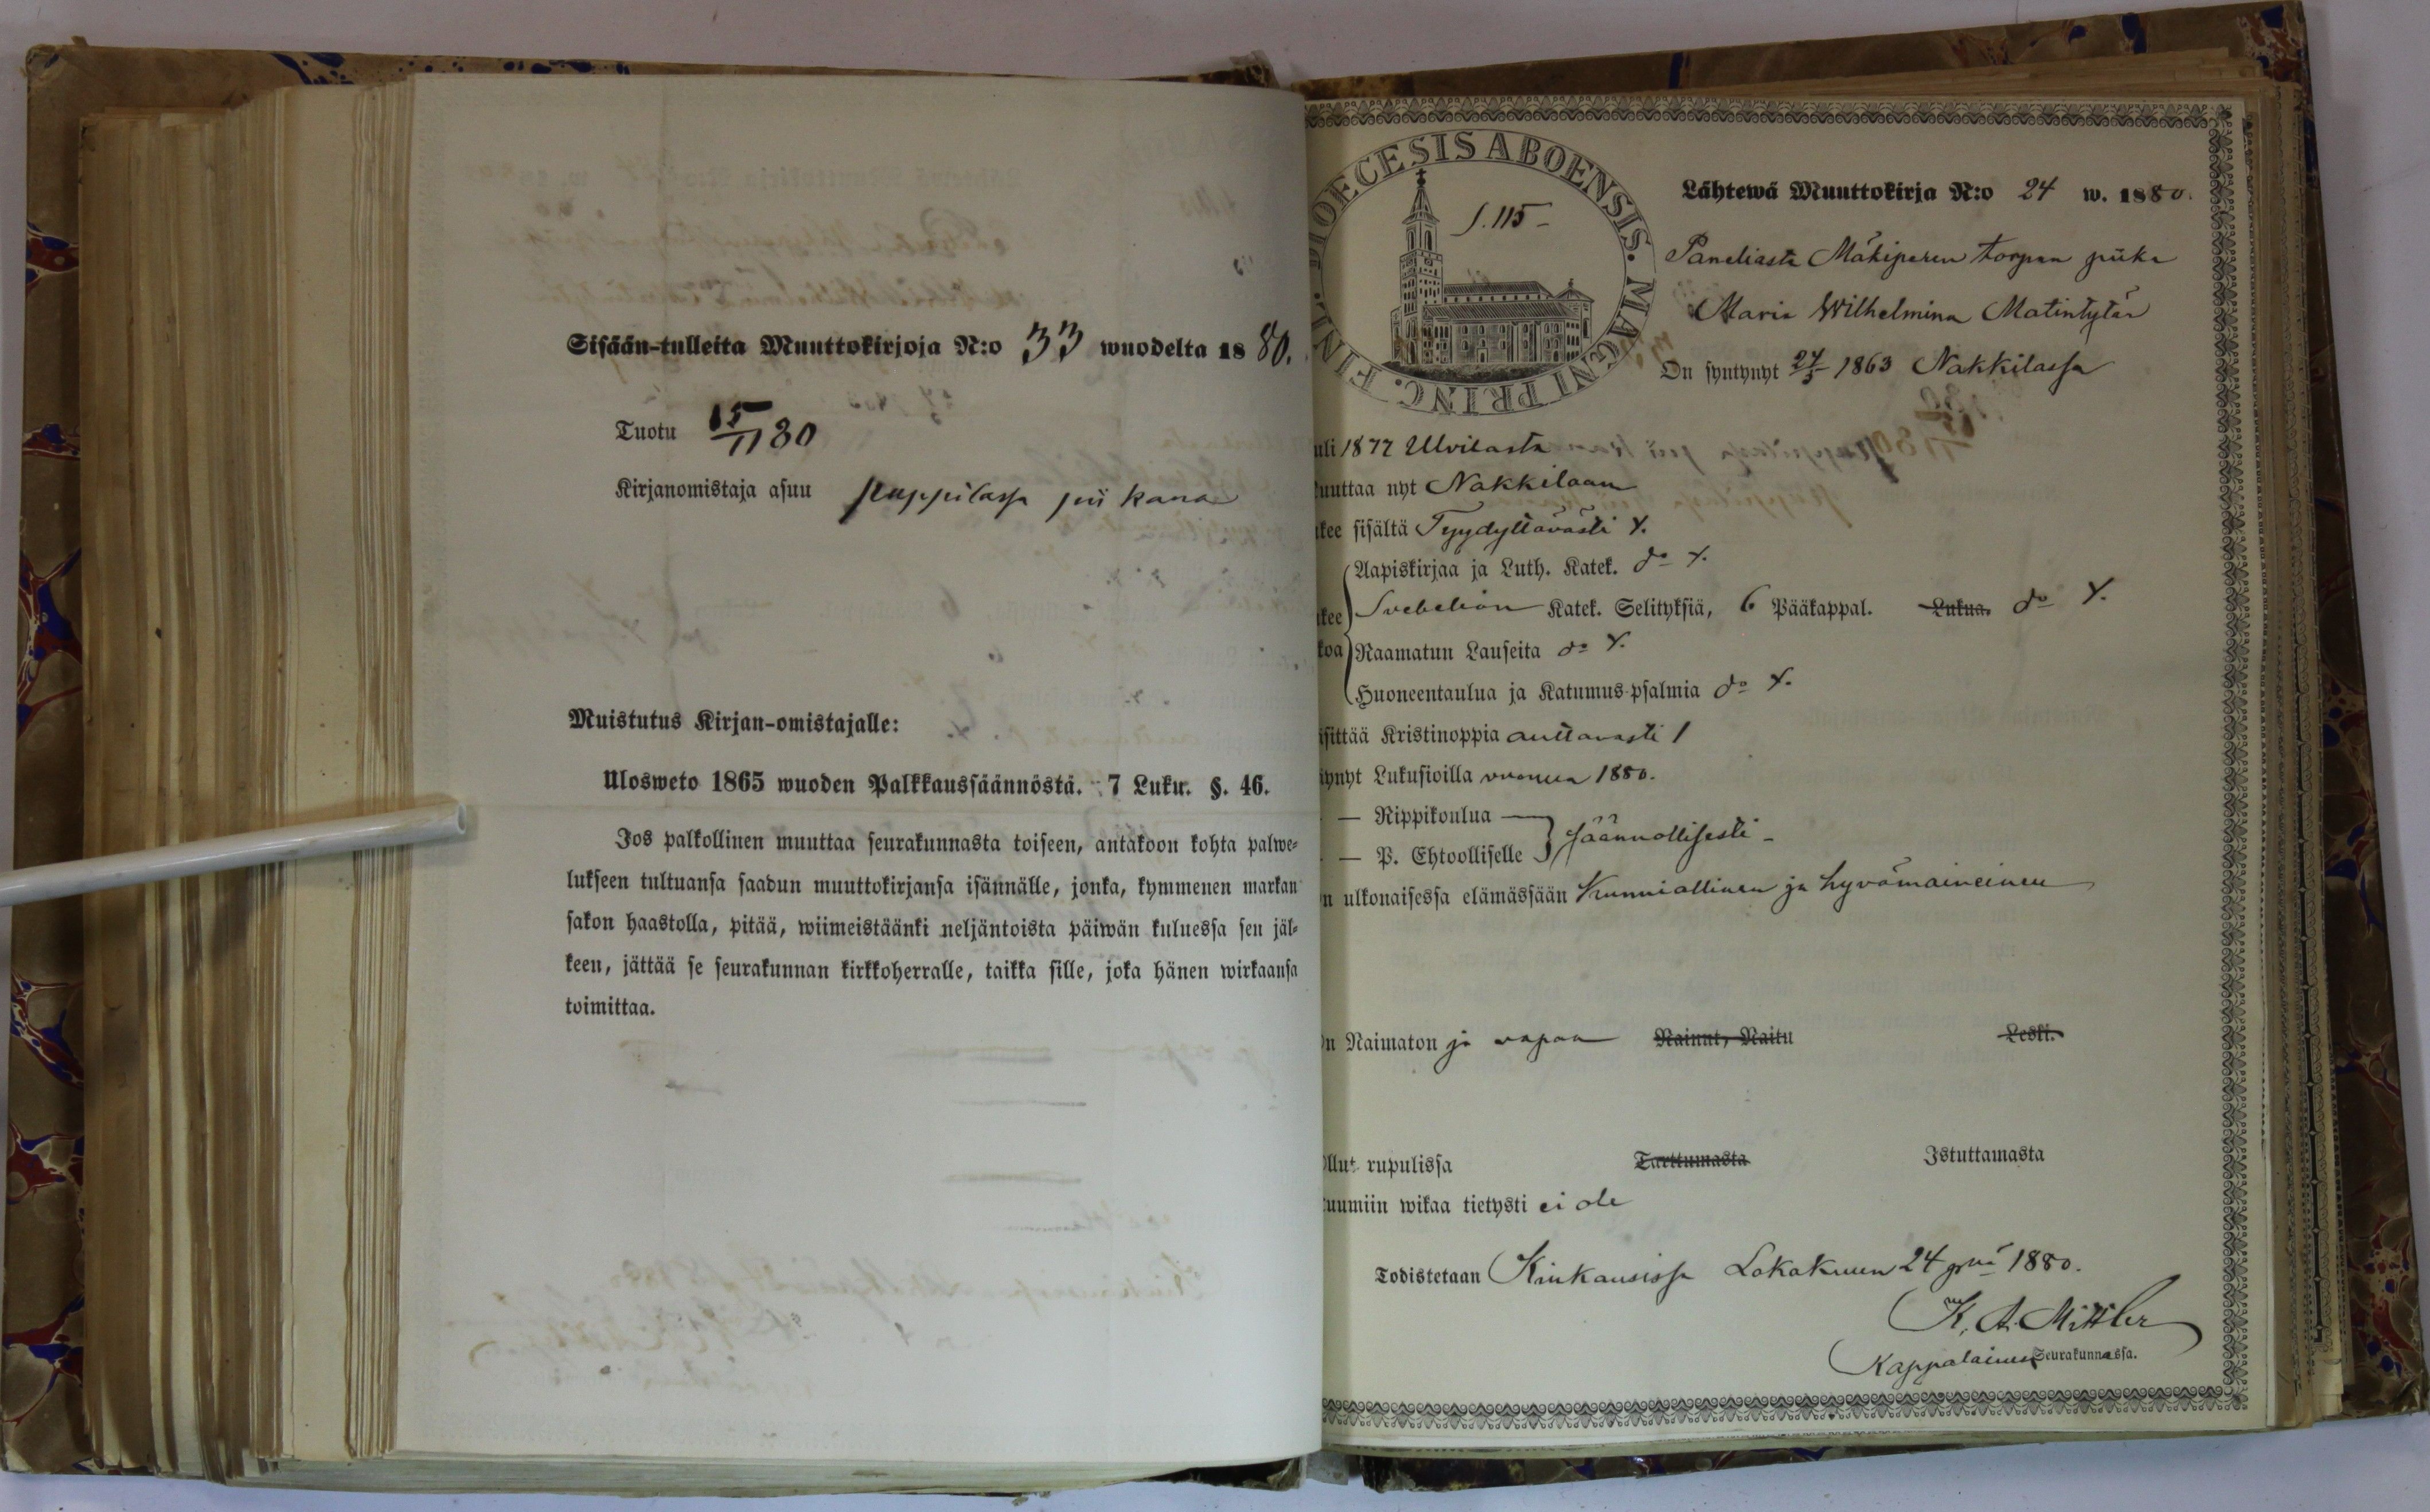 Sisään-tulleita Muuttokirjoja N:o 33 wuodelta 1880.
Tuotu 15/11 80
Kirjanomistaja asuu pappilassa piikana
Muistutus Kirjan-omistajalle:
Ulosweto 1865 wuoden Palkkaussäännöstä. 7 Luku. §. 46.
Jos palkollinen muuttaa seurakunnasta toiseen, antakoon kohta palwe-
lukseen tultuansa saadun muuttokirjansa isännälle, jonka, kymmenen markan
sakon haastolla, pitää, wiimeistäänki neljäntoista päiwän kuluessa sen jäl-
keen, jättää se seurakunnan kirkkoherralle, taikka sille, joka hänen wirkaansa
toimittaa.
DIOECESIS ABOENSIS. MAGNI PRINC. FINL.
S. 115-
Lähtewä Muuttokirja N:o 24 w. 1880.
Paneliasta Mäkiperen torpan piika
Maria Wilhelmina Matintytär
On syntynyt 27/3 1863 Nakkilassa
uli 1877 Ulvilasta
uuttaa nyt Nakkilaan
kee sisältä Tyydyttävästi Y.
Aapiskirjaa ja Luth. Katek. do Y.
kee Svebelion Katek. Selityksiä, 6 Pääkappal. Lukua. do Y.
koa Raamatun Lauseita do Y.
Huoneentaulua ja Katumus-psalmia do Y.
sittää Kristinoppia auttavasti /
ynyt Lukusioilla vuonna 1880.
— Rippikoulua —
— P. Ehtoolliselle säännöllisesti -
n ulkonaisessa elämässään Kunniallinen ja hyvämaineinen
n Naimaton ja vapaa Nainut, Naitu Leski.
llut rupulissa Tarttumasta Istuttamasta
uumiin wikaa tietysti ei ole
Todistetaan Kiukaisissa Lokakuun 24 pnä 1880.
K. A. Mittler
Kappalainen Seurakunnassa.